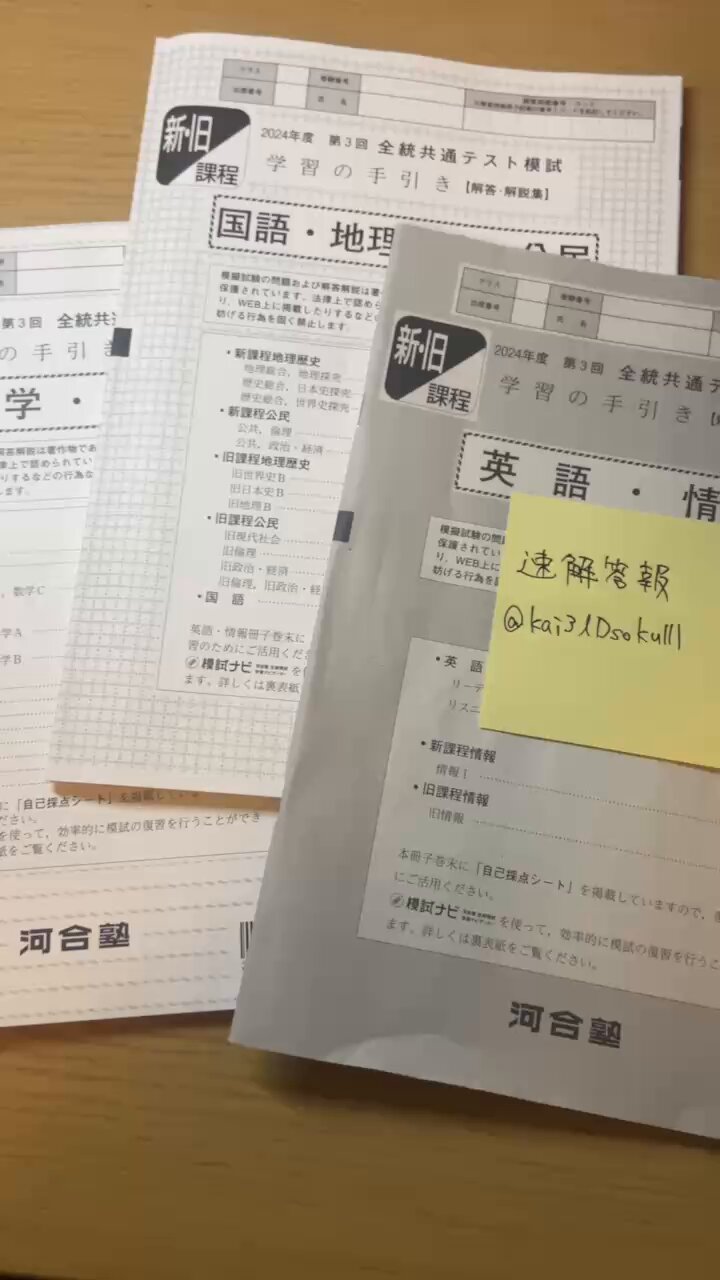 クラス
受験番号
出席番号
氏 名
新・旧
課程
2024年度 第3回 全統共通テスト模試
学習の手引き【解答・解説集】
国語・地理
公民
模擬試験の問題および解答解説は著
保護されています。法律上で認めら
り、WEB上に掲載したりするなどの
妨げる行為を固く禁止します。
・新課程地理歴史
地理総合，地理探究
歴史総合，日本史探究
歴史総合，世界史探究
・新課程公民
公共，倫理
公共，政治・経済
・旧課程地理歴史
旧世界史B
旧日本史B
旧地理B
・旧課程公民
旧現代社会
旧倫理
旧政治・経済
旧倫理，旧政治・経
・国 語
英語・情報冊子巻末に
習のためにご活用くださ
模試ナビ
ます。詳しくは裏表紙
第3回 全統共通
の手引き
学・
解答解説は著作物であ
律上で認められてい
りするなどの行為な
します。
，数学C
学A
学B
に「自己採点シート」を掲載してい
ださい。
を使って，効率的に模試の復習を行うことができ
紙をご覧ください。
河合塾
クラス
受験番号
出席番号
氏 名
新・旧
課程
2024年度 第3回 全統共通テ
学習の手引き
英語・情
模擬試験の問題
保護されてい
り、WEB上に
妨げる行為を
速解答報
@kai3lDsokulll
・英 語
リーデ
リスニ
・新課程情報
情報Ⅰ
・旧課程情報
旧情報
本冊子巻末に「自己採点シート」を掲載していますので，
にご活用ください。
模試ナビ を使って，効率的に模試の復習を行うこ
ます。詳しくは裏表紙をご覧ください。
河合塾